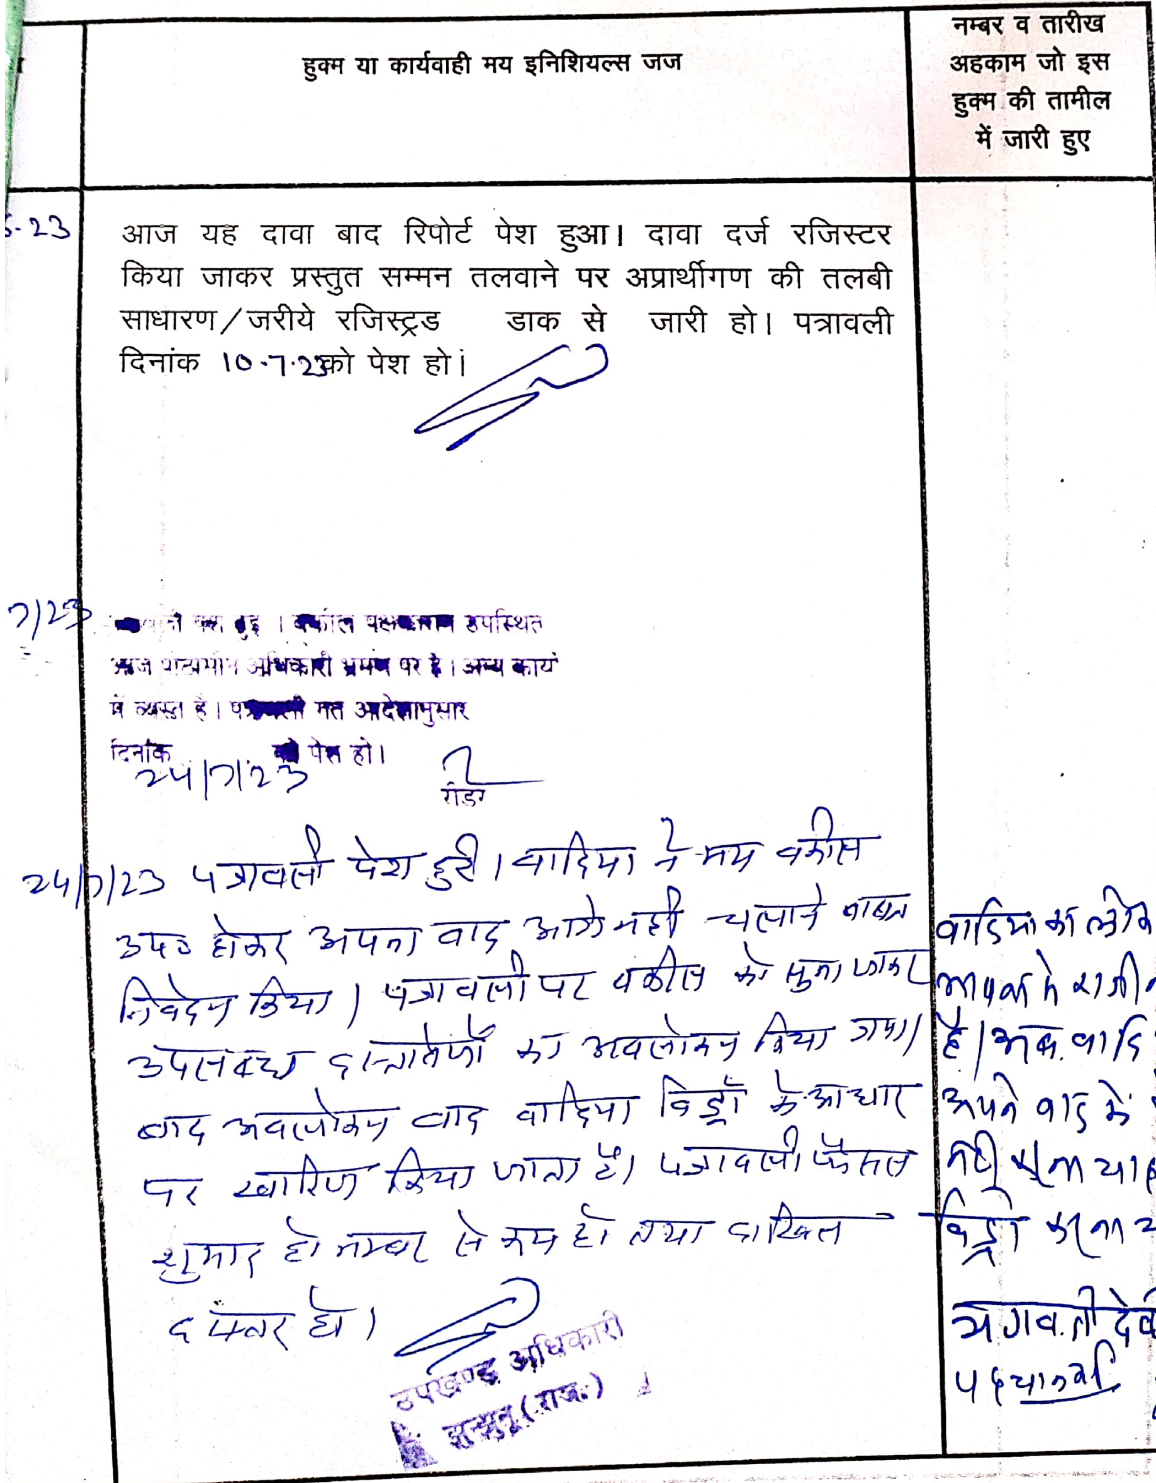 हुक्म या कार्यवाही मय इनिशियल्स जज
नम्बर व तारीख
अहकाम जो इस
हुक्म की तामील
में जारी हुए
5-23
आज यह दावा बाद रिपोर्ट पेश हुआ। दावा दर्ज रजिस्टर
किया जाकर प्रस्तुत सम्मन तलवाने पर अप्रार्थीगण की तलबी
साधारण/जरीये रजिस्ट्रड डाक से जारी हो। पत्रावली
दिनांक 10.7.23को पेश हो।
7/23
पेश हुई । वकील उपस्थित
आज अधिकारी भ्रमण पर है। अन्य कार्य
में व्यस्त है। गत आदेशानुसार
दिनांक को पेश हो।
24/7/23
रीडर
24/7/23 पत्रावली पेश हुई। वादिया ने मय वकील
उप० होकर अपना वाद आगे नही चलाने बाबत
निवेदन किया। पत्रावली पर वकील को सुना जाकर
उपलबध दस्तावेजों का अवलोकन किया गया।
बाद अवलोकन वाद वादिया विड्रॉ के आधार
पर खारिज किया जाता है। पत्रावली फैसल
शुमार हो नम्बर से कम हो तथा दाखिल
दफ्तर हो।
उपखण्ड अधिकारी
झुन्झुनू (राज.)
वादिया का
है।
अपने वाद में
नही
विड्रो करना
भगवती देवी